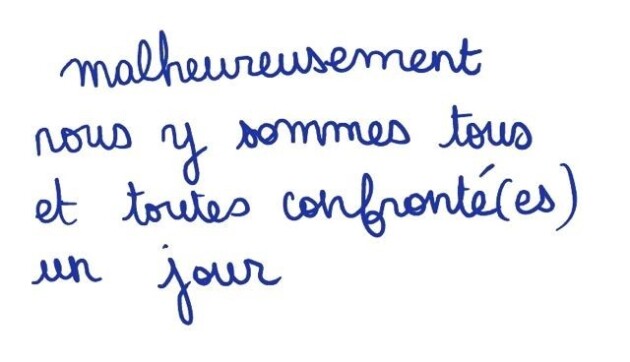 malheureusement
nous y sommes tous
et toutes confronté(es)
un jour